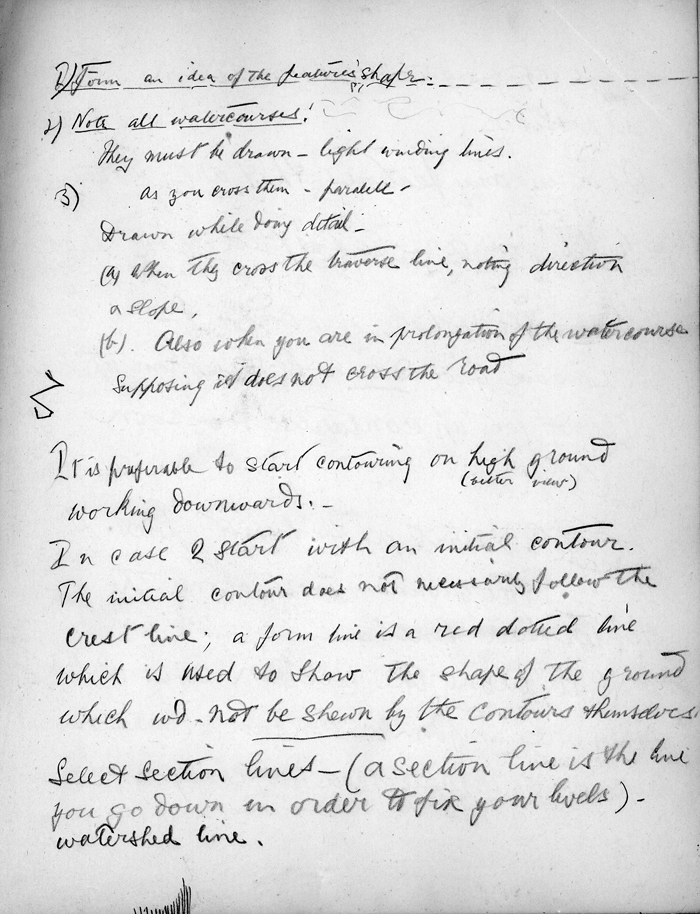 1) Form an idea of the features' shape:
2) Note all watercourses!
They must be drawn - light winding lines.
3) as you cross them - parallel -
Drawn while doing detail -
(a) when they cross the traverse line, noting direction
a slope.
(b). Also when you are in prolongation of the watercourse
supposing it does not cross the road
It is preferable to start contouring on high ground
(better view)
working downwards. -
In case 2 start with an initial contour.
The initial contour does not necessarily follow the
crest line; a form line is a red dotted line
which is used to show the shape of the ground
which wd. not be shewn by the contours themselves
Select section lines - (a section line is the line
you go down in order to fix your levels) -
watershed line.